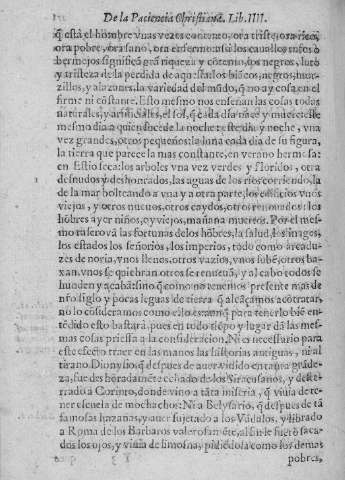 De la Paciencia Christiana. Lib. IIII.
q̃ està el hombre vnas vezes contento, ora triste, ora rico,
ora pobre, ora sano, ora enfermo: assi los cauallos rufos o
bermejos significã grã riqueza y cõtento, los negros, luto
y tristeza de la perdida de aquesta: los blãcos, negros, mor-
zillos, y alazones, la variedad del mũdo, q̃ no ay cosa en el
firme ni cõstante. Esto mesmo nos enseñan las cosas todas
naturales, y artificiales, el sol, q̃ cada dia nace y muere: este
mesmo dia a quien sucede la noche: este dia y noche, vna
vez grandes, otros pequeños: la luna cada dia de su figura,
la tierra que parece la mas constante, en verano hermosa:
en Estio seca: los arboles vna vez verdes y floridos, otra
desnudos y deshonrados, las aguas de los rios corriendo, la
de la mar bolteando a vna y a otra parte, los edificios vnos
viejos, y otros nueuos, otros caydos, otros renouados: los
hõbres ayer niños, oy viejos, mañana muertos. Por el mes-
mo rasero vã las fortunas de los hõbres, la salud, los linages,
los estados los señorios, los imperios, todo como arcadu-
zes de noria, vnos llenos, otros vazios, vnos subẽ, otros ba-
xan, vnos se quiebran otros se renueuã, y al cabo todos se
hunden y acabã: sino q̃ como no tenemos presente mas de
nr̃o siglo y pocas leguas de tierra q̃ alcãçamos a cõtratar,
no lo cõsideramos como ello es: aunq̃ para tenerlo biẽ en-
tẽdido esto bastarà, pues en todo tiẽpo y lugar dã las mes-
mas cosas priessa a la consideracion. Ni es necessario para
este efecto traer en las manos las historias antiguas, ni al
tirano Dionysio, q̃ despues de auer viuido en tanta grãde-
za, fue desheredado echado de los Siracusanos, y deste-
rrado a Corinto, donde vino a tãta miseria, q̃ viuia de te-
ner escuela de mochachos: Ni a Belysario, q̃ despues de tã
famosas hazañas, y auer sujetado a los Vãdalos, y librado
a Roma de los Barbaros valerosamẽte, al fin le fuerõ saca-
dos los ojos, y viuia de limosna, pidiẽdola como los demas
pobres,